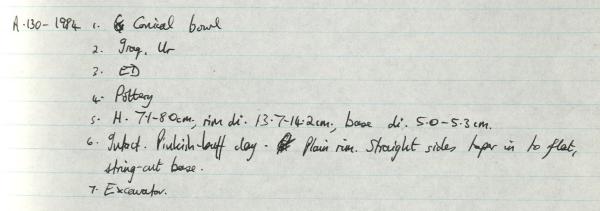 A.130-1984 1. Conical bowl
2. Iraq, Ur
3. ED
4. Pottery
5. H. 7.1-8.0cm, rim di. 13.7-14.2cm, base di. 5.0-5.3cm.
6. Intact. Pinkish-buff clay. Plain rim. Straight sides taper in to flat,
string-cut base.
7. Excavator.